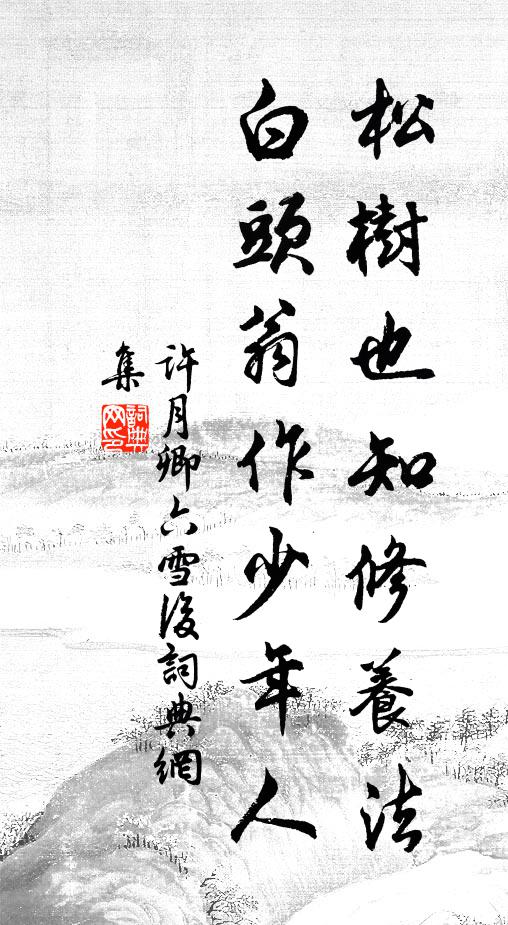 松樹也知修養法
白頭翁作少年人
許月卿六雪後詞典網
集
詞典网印